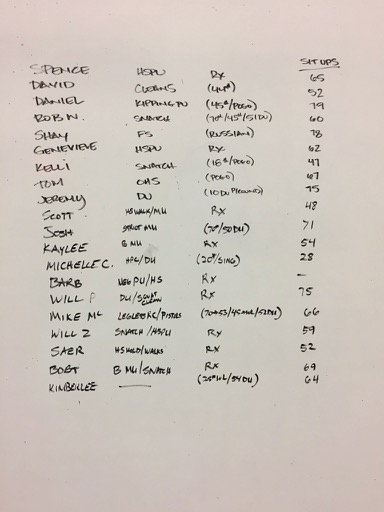 SIT UPS
SPENCE HSPU Rx 65
DAVID CLEANS (44#) 52
DANIEL KIPPING PU (45#/POGO) 79
ROBIN SNATCH (70#/45#/51DU) 60
SHAY FS (RUSSIAN) 78
GENEVIEVE HSPU Rx 62
KELLI SNATCH (18#/POGO) 47
TOM OHS (POGO) 67
JEREMY DU (10DU P/ROUND) 75
SCOTT HS WALK/MU Rx 48
JOSH STRICT MU (70#/50DU) 71
KAYLEE B MU Rx 54
MICHELLE C. HPC/DU (20#/SING) 28
BARB NEG PU/HS Rx —
WILL P DU/SQUAT CLEAN Rx 75
MIKE Mc LEGLESS RC/PISTOLS 66
WILL Z SNATCH/HSPU Rx 59
SAER HS HOLD/WALKS Rx 52
BOET B MU/SNATCH Rx 69
KIMBERLEE — 64